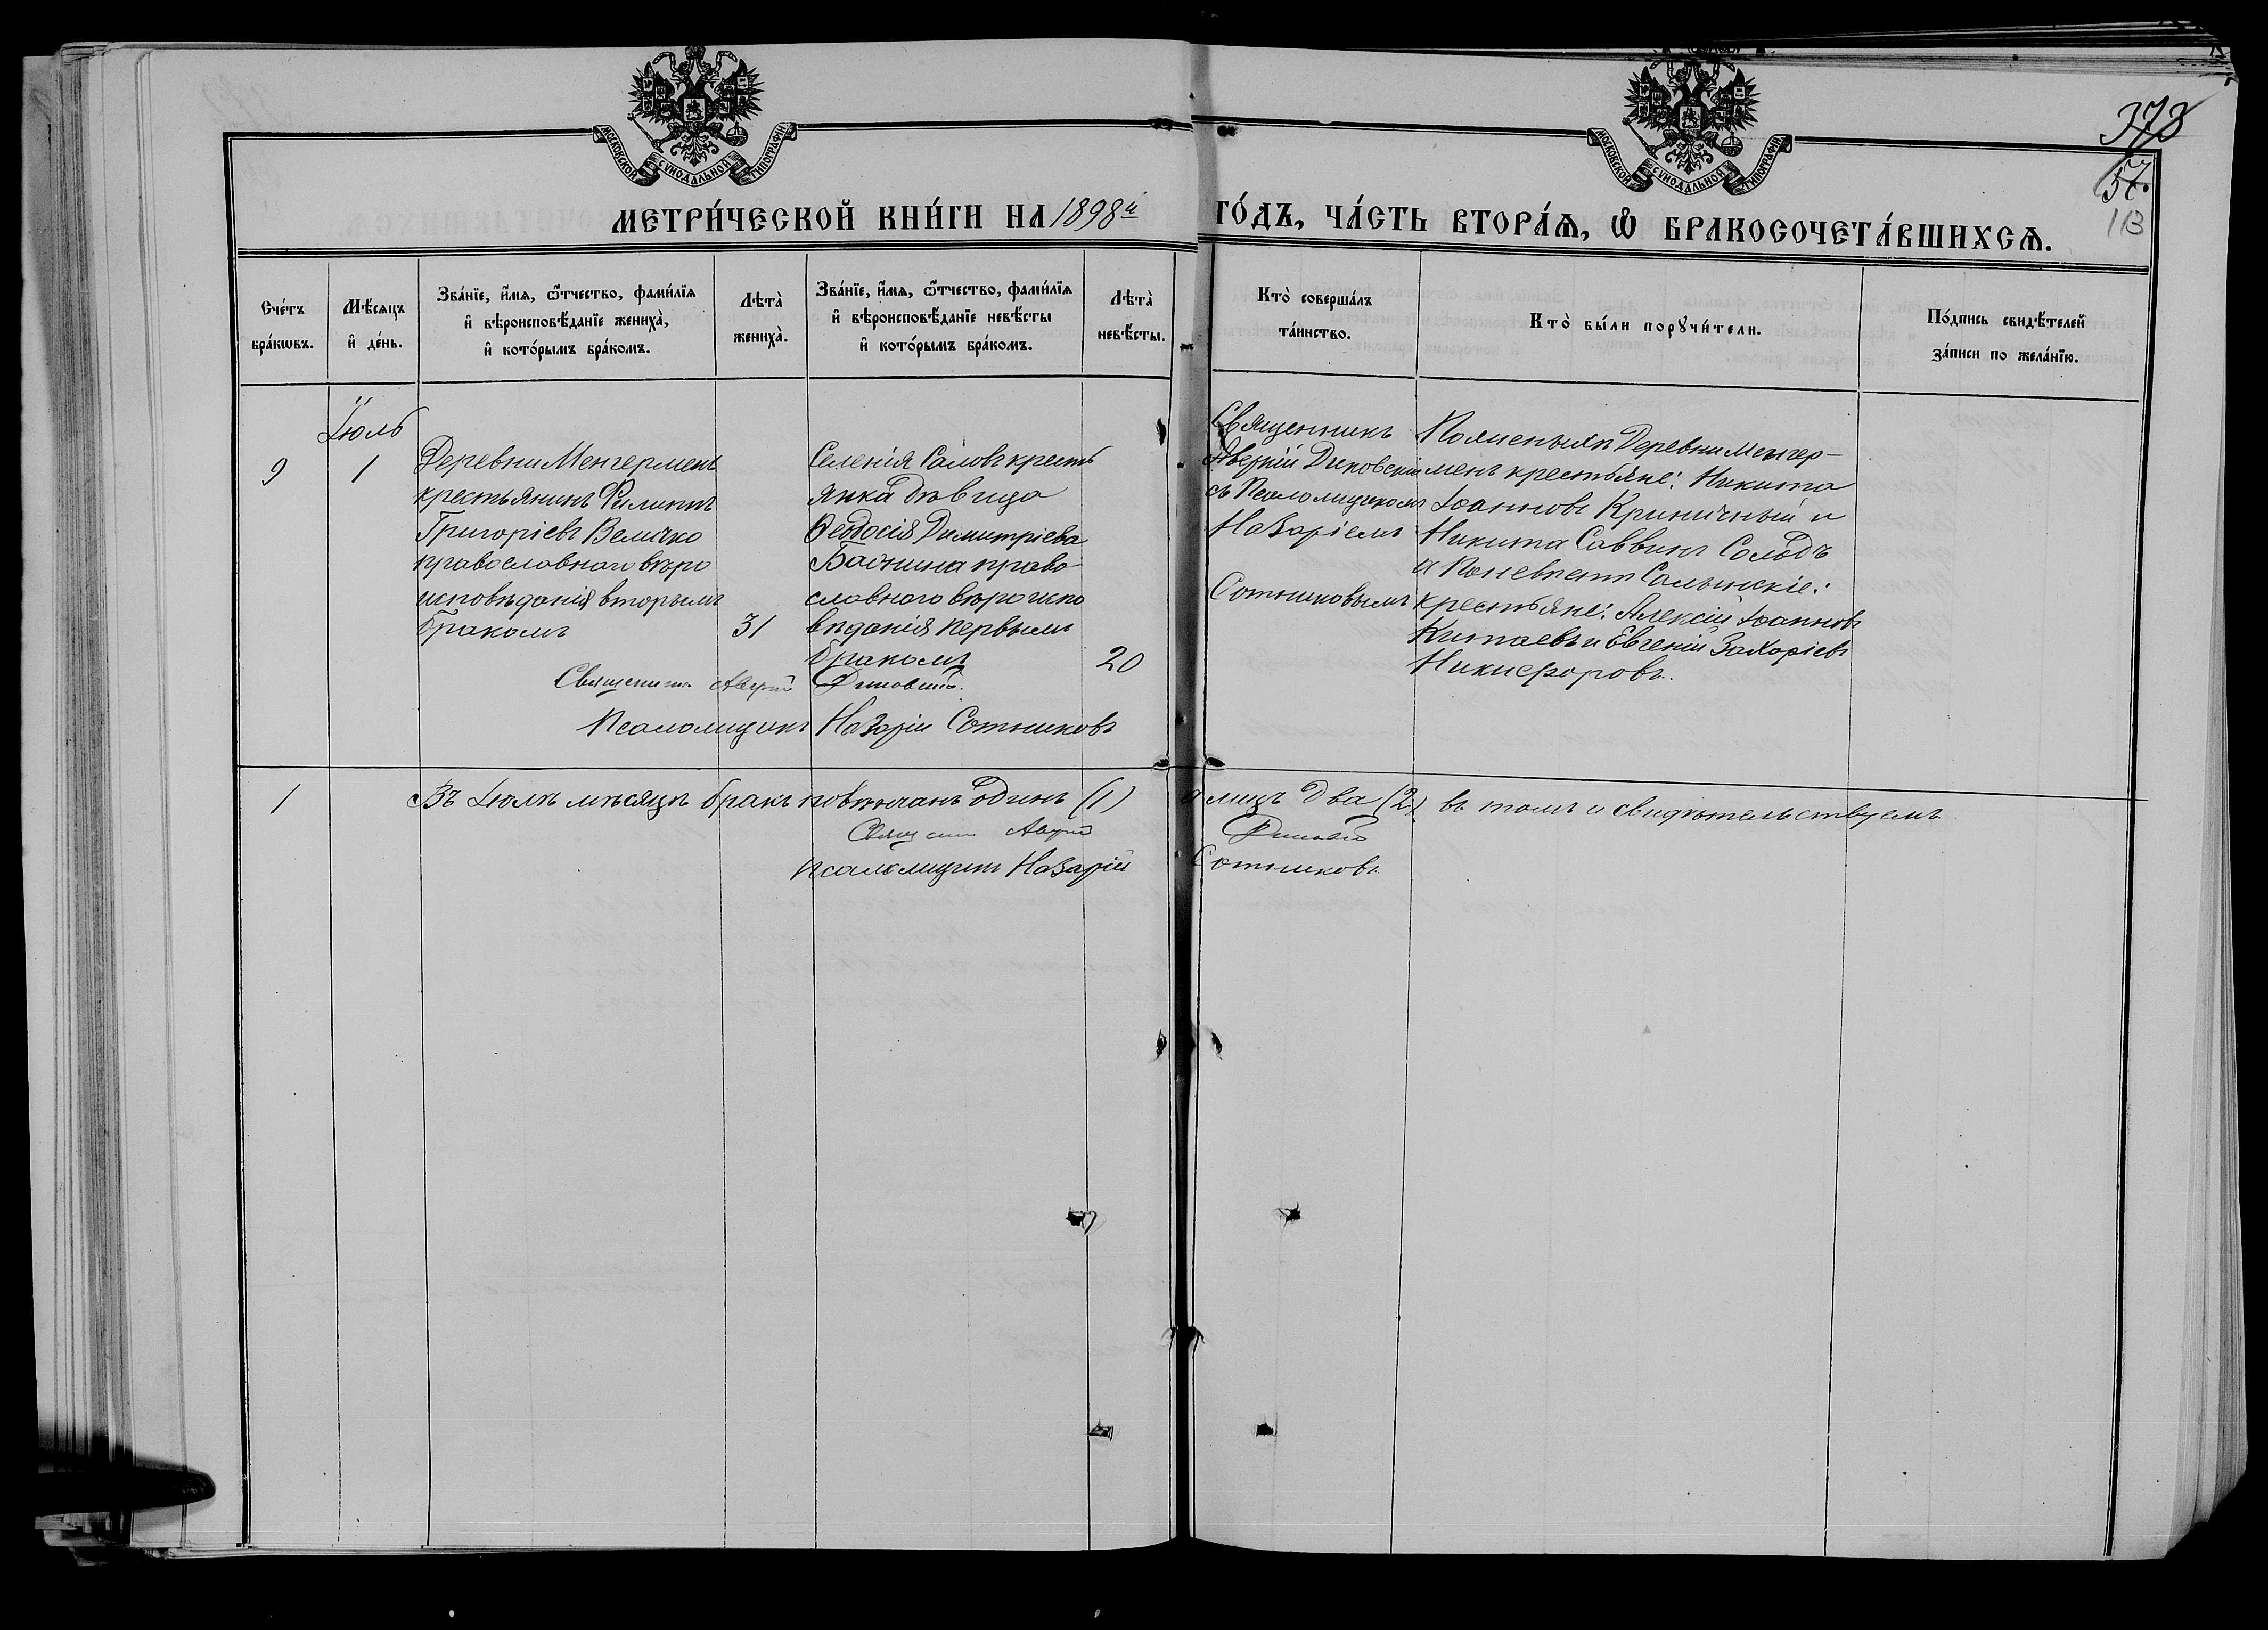 МОСКОВСКОЙ СУНОДАЛЬНОЙ ТИПОГРАФІИ
МОСКОВСКОЙ СУНОДАЛЬНОЙ ТИПОГРАФІИ
378
57.
113
МЕТРИ́ЧЕСКОЙ КНИ́ГИ НА 1898й ГО́ДЪ, ЧА́СТЬ ВТОРА́Ѧ, Ѽ БРАКОСОЧЕТА́ВШИХСѦ.
Сче́тъ
бра́кѡвъ.
Мѣ́сяцъ
и҆ де́нь.
Зва́нїе, и҆́мѧ, ѻ҆́тчество, фами́лїѧ
и҆ вѣроисповѣ́данїе жениха̀,
и҆ кото́рымъ бра́комъ.
Лѣта̀
жениха̀.
Зва́нїе, и҆́мѧ, ѻ҆́тчество, фами́лїѧ
и҆ вѣроисповѣ́данїе невѣ́сты
и҆ кото́рымъ бра́комъ.
Лѣта̀
невѣ́сты.
Кто̀ соверша́лъ
та́инство.
Кто̀ бы́ли порꙋчи́тели.
По́дпись свидѣ́телей
за́писи по жела́нїю.
Іюль
9
1
Деревни Менгермень
крестьянинъ Филиппъ
Григоріевъ Величко
православнаго вѣро
исповѣданія вторымъ
бракомъ
31
Селенія Саловъ кресть
янка дѣвица
Ѳеодосія Димитріева
право
славнаго вѣроиспо
вѣданія первымъ
бракомъ
20
Священникъ
Аверкій Диковскій
съ Псаломщикомъ
Назаріемъ
Сотниковымъ
По женихѣ Деревни Менгер-
мень крестьяне: Никита
Іоанновъ Криничный и
Никита Саввинъ Солодъ
а По невѣстѣ Салынскіе:
крестьяне: Алексій Іоанновъ
Китаевъ и Евгеній Захаріевъ
Никифоровъ.
Священникъ Аверкій Диковскій.
Псаломщикъ Назарій Сотниковъ
1
Въ Іюлѣ мѣсяцѣ бракъ повѣнчанъ одинъ (1) а лицъ два (2) въ томъ и свидѣтельствуемъ
Священникъ Аверкій Диковскій
Псаломщикъ Назарій Сотниковъ.